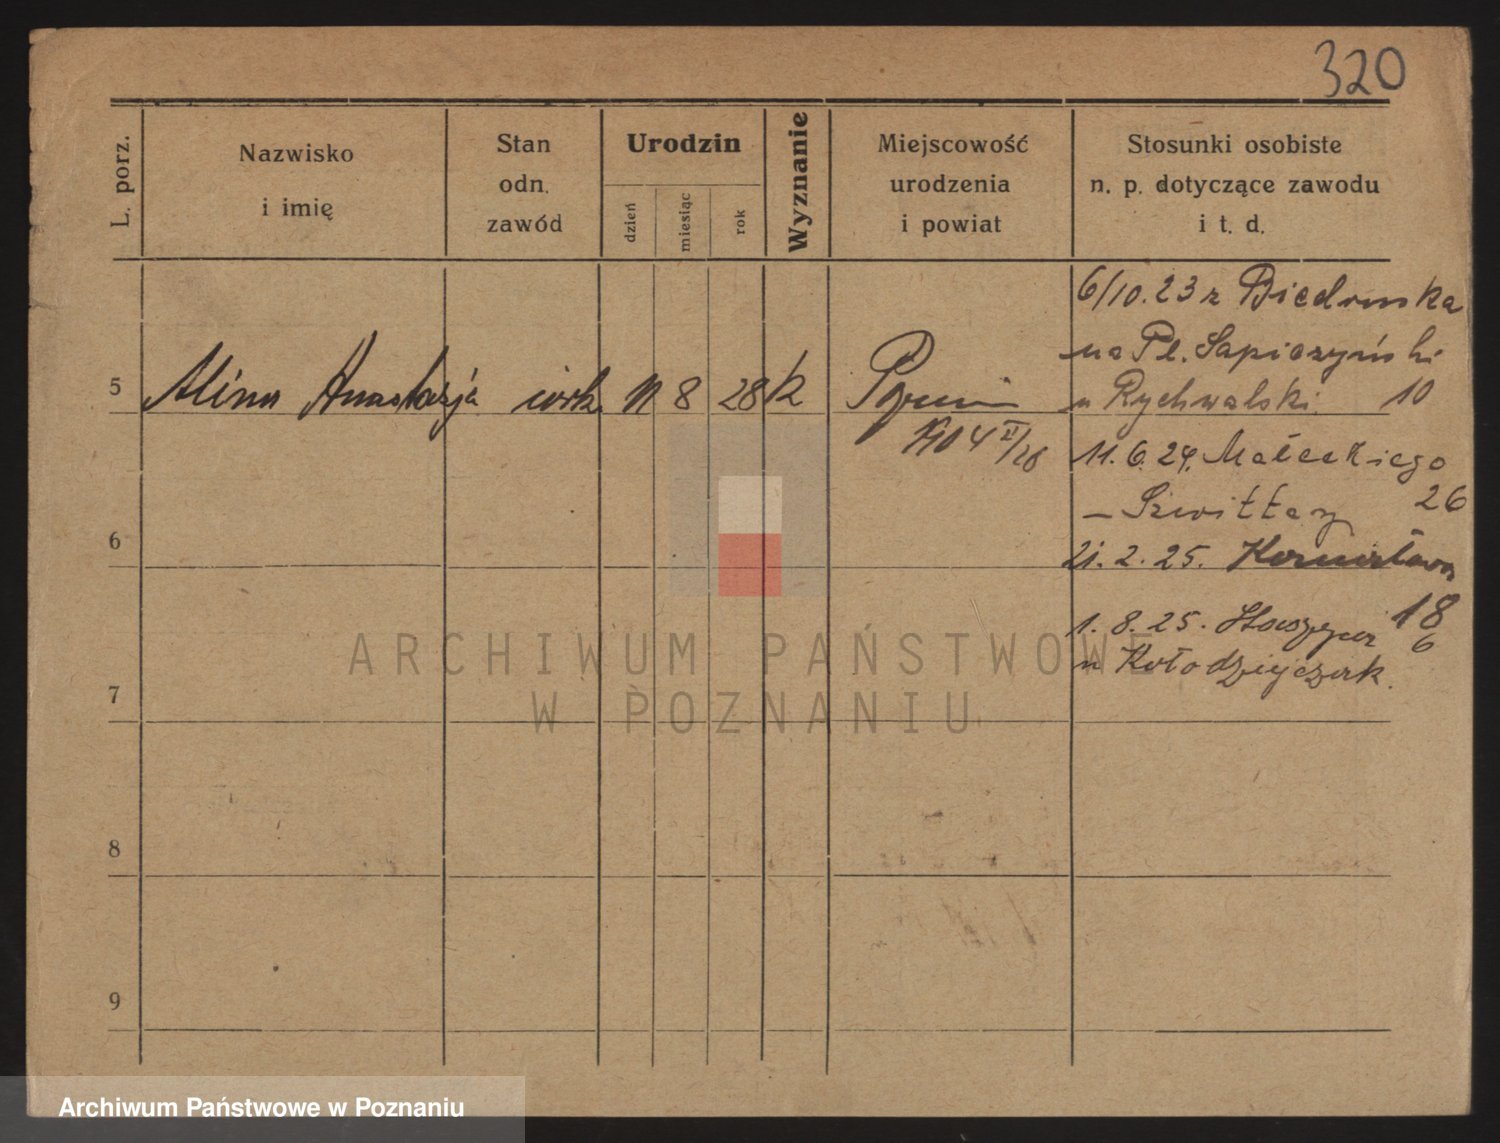 320
L. porz.
Nazwisko
i imię
Stan
odn.
zawód
Urodzin
dzień
miesiąc
rok
Wyznanie
Miejscowość
urodzenia
i powiat
Stosunki osobiste
n. p. dotyczące zawodu
i t. d.
6/10.23 z Biedruska
na Pl. Sapieżyński
u Rychwalski 10
5 Alina Anastazja córk. 11 8 28 k
11.6.24. Małeckiego
26
6
21.2.25.
1.8.25. 18
6
u Kołodziejczak.
7
8
9
ARCHIWUM PAŃSTWOWE
W POZNANIU
Archiwum Państwowe w Poznaniu